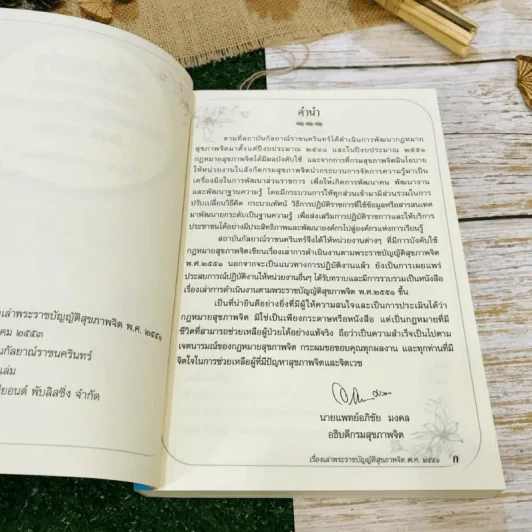 เล่าพระราชบัญญัติสุขภาพจิต พ.ศ. ๒๕๕๑
คม ๒๕๕๓
กัลยาณ์ราชนครินทร์
เล่ม
ยอนด์ พับลิสชิ่ง จำกัด
คำนำ
ตามที่สถาบันกัลยาณ์ราชนครินทร์ได้ดำเนินการพัฒนากฎหมาย
สุขภาพจิตมาตั้งแต่ปีงบประมาณ ๒๕๔๔ และในปีงบประมาณ ๒๕๕๑
กฎหมายสุขภาพจิตได้มีผลบังคับใช้ และจากการที่กรมสุขภาพจิตมีนโยบาย
ให้หน่วยงานในสังกัดกรมสุขภาพจิตนำกระบวนการจัดการความรู้มาเป็น
เครื่องมือในการพัฒนาส่วนราชการ เพื่อให้เกิดการพัฒนาคน พัฒนางาน
และพัฒนาฐานความรู้ โดยมีกระบวนการให้ทุกส่วนเข้ามามีส่วนร่วมในการ
ปรับเปลี่ยนวิธีคิด กระบวนทัศน์ วิธีการปฏิบัติราชการที่ใช้ข้อมูลหรือสารสนเทศ
มาพัฒนายกระดับเป็นฐานความรู้ เพื่อส่งเสริมการปฏิบัติราชการและให้บริการ
ประชาชนได้อย่างมีประสิทธิภาพและพัฒนาองค์กรไปสู่องค์กรแห่งการเรียนรู้
สถาบันกัลยาณ์ราชนครินทร์จึงได้ให้หน่วยงานต่างๆ ที่มีการบังคับใช้
กฎหมายสุขภาพจิตเขียนเรื่องเล่าการดำเนินงานตามพระราชบัญญัติสุขภาพจิต
พ.ศ.๒๕๕๑ นอกจากจะเป็นแนวทางการปฏิบัติงานแล้ว ยังเป็นการเผยแพร่
ประสบการณ์ปฏิบัติงานให้หน่วยงานอื่นๆ ได้รับทราบและมีการรวบรวมเป็นหนังสือ
เรื่องเล่าการดำเนินงานตามพระราชบัญญัติสุขภาพจิต พ.ศ.๒๕๕๑ ขึ้น
เป็นที่น่ายินดีอย่างยิ่งที่มีผู้ให้ความสนใจและเป็นการประเมินได้ว่า
กฎหมายสุขภาพจิต มิใช่เป็นเพียงกระดาษหรือหนังสือ แต่เป็นกฎหมายที่มี
ชีวิตที่สามารถช่วยเหลือผู้ป่วยได้อย่างแท้จริง ถือว่าเป็นความสำเร็จเป็นไปตาม
เจตนารมณ์ของกฎหมายสุขภาพจิต กระผมขอขอบคุณทุกผลงาน และทุกท่านที่มี
จิตใจในการช่วยเหลือผู้ที่มีปัญหาสุขภาพจิตและจิตเวช
นายแพทย์อภิชัย มงคล
อธิบดีกรมสุขภาพจิต
เรื่องเล่าพระราชบัญญัติสุขภาพจิต พ.ศ. ๒๕๕๑ ก